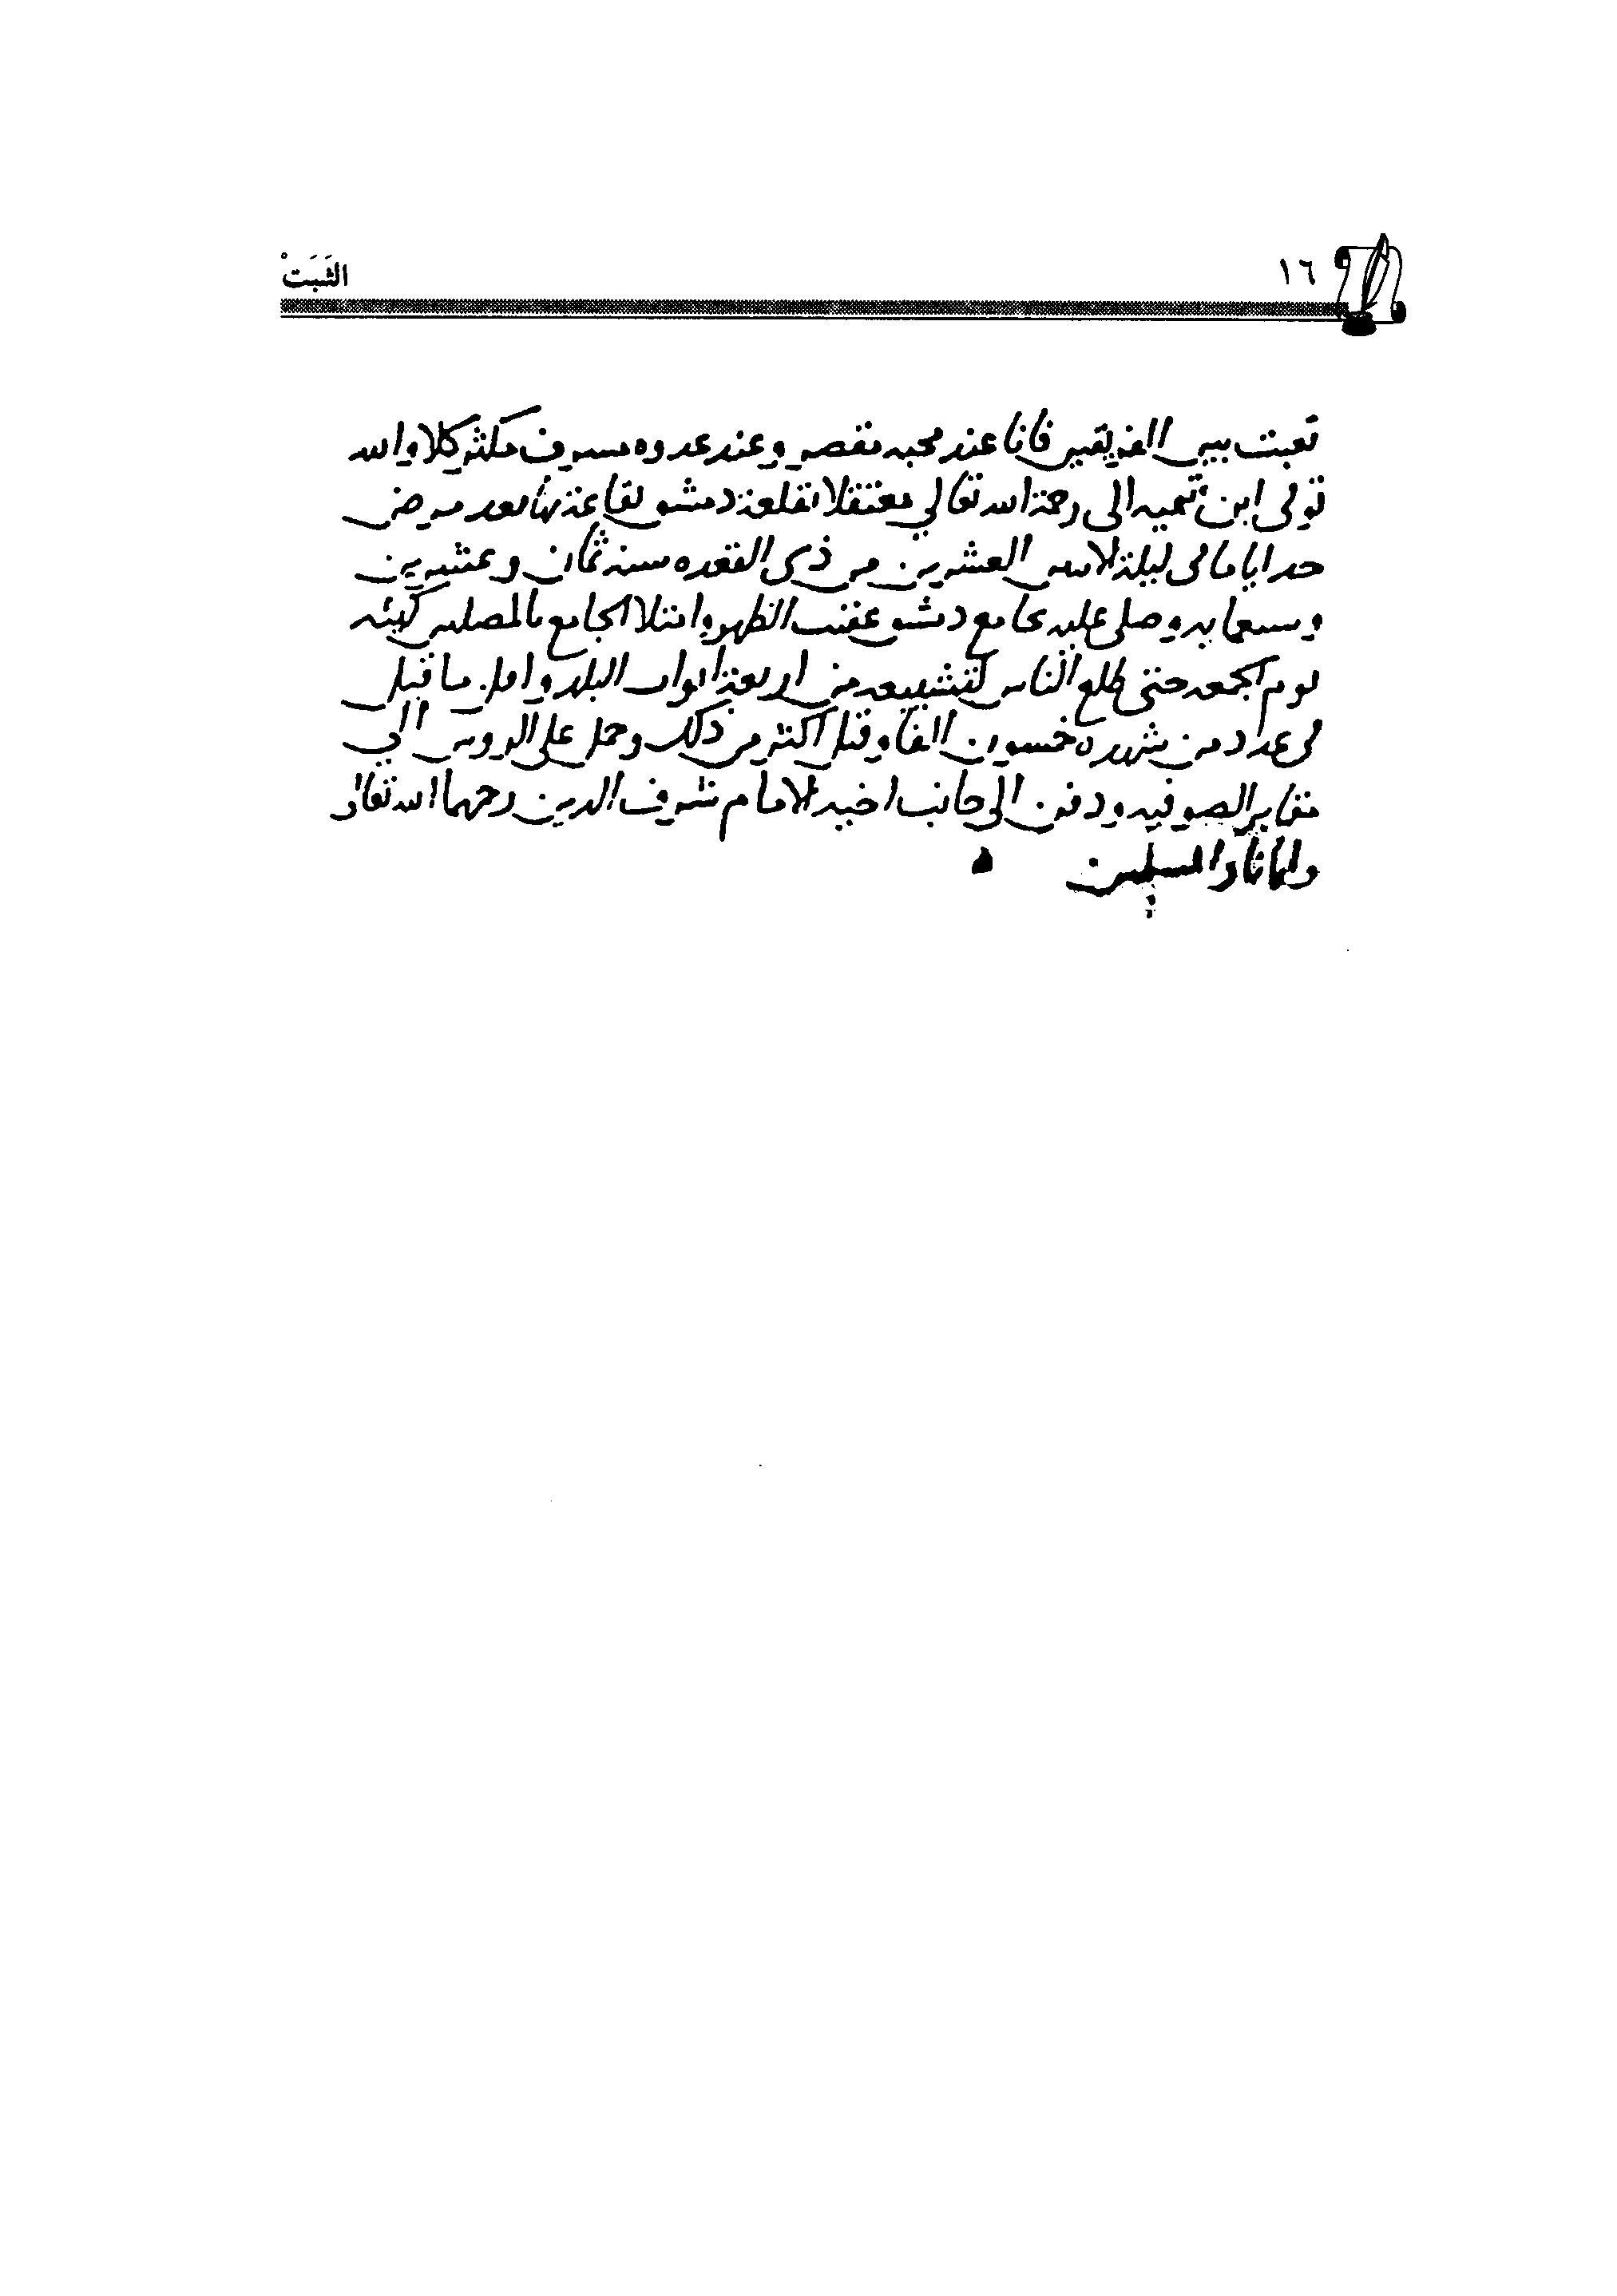 ١٦
الثَبَتْ
تعبت بين الفريقين فانا عند محبه مقصر وعند عدوه مسرف مكثر كلا والله
توفي ابن تيميه الى رحمة الله تعالي معتقلا بقلعة دمشق بقاعة بها بعد مرض
جد اياما في ليلة الاثنين العشرين من ذي القعده سنه ثمان وعشرين
وسبعمايه وصلي عليه بجامع دمشق عقيب الظهر وامتلا الجامع بالمصلين كهيئه
يوم الجمعه حتى طلع الناس لتشييعه من اربعة ابواب البلد واقل ما قيل
في عدد من شهده خمسون الفا وقيل اكثر من ذلك وحمل على الروس الي
مقابر الصوفيه ودفن الى جانب اخيه الامام شرف الدين رحمهما الله تعالى
وايانا والمسلمين